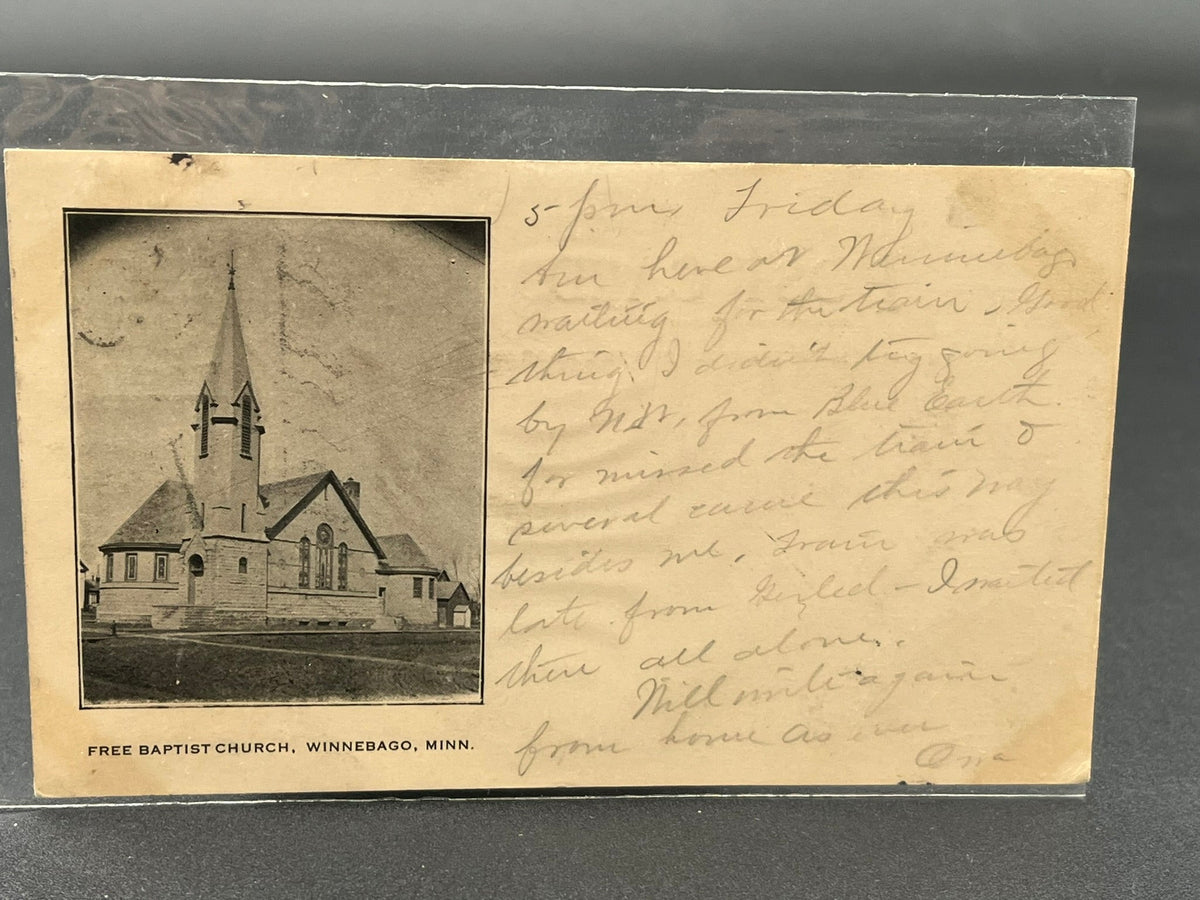 5 pm, Friday
Am here at Winnebago
waiting for the train, Good
thing I didn't try going
by from Blue Earth.
for missed the train &
several came this way
besides me, Train was
late from – I waited
there all alone.
Will write again
from home As ever
FREE BAPTIST CHURCH, WINNEBAGO, MINN.